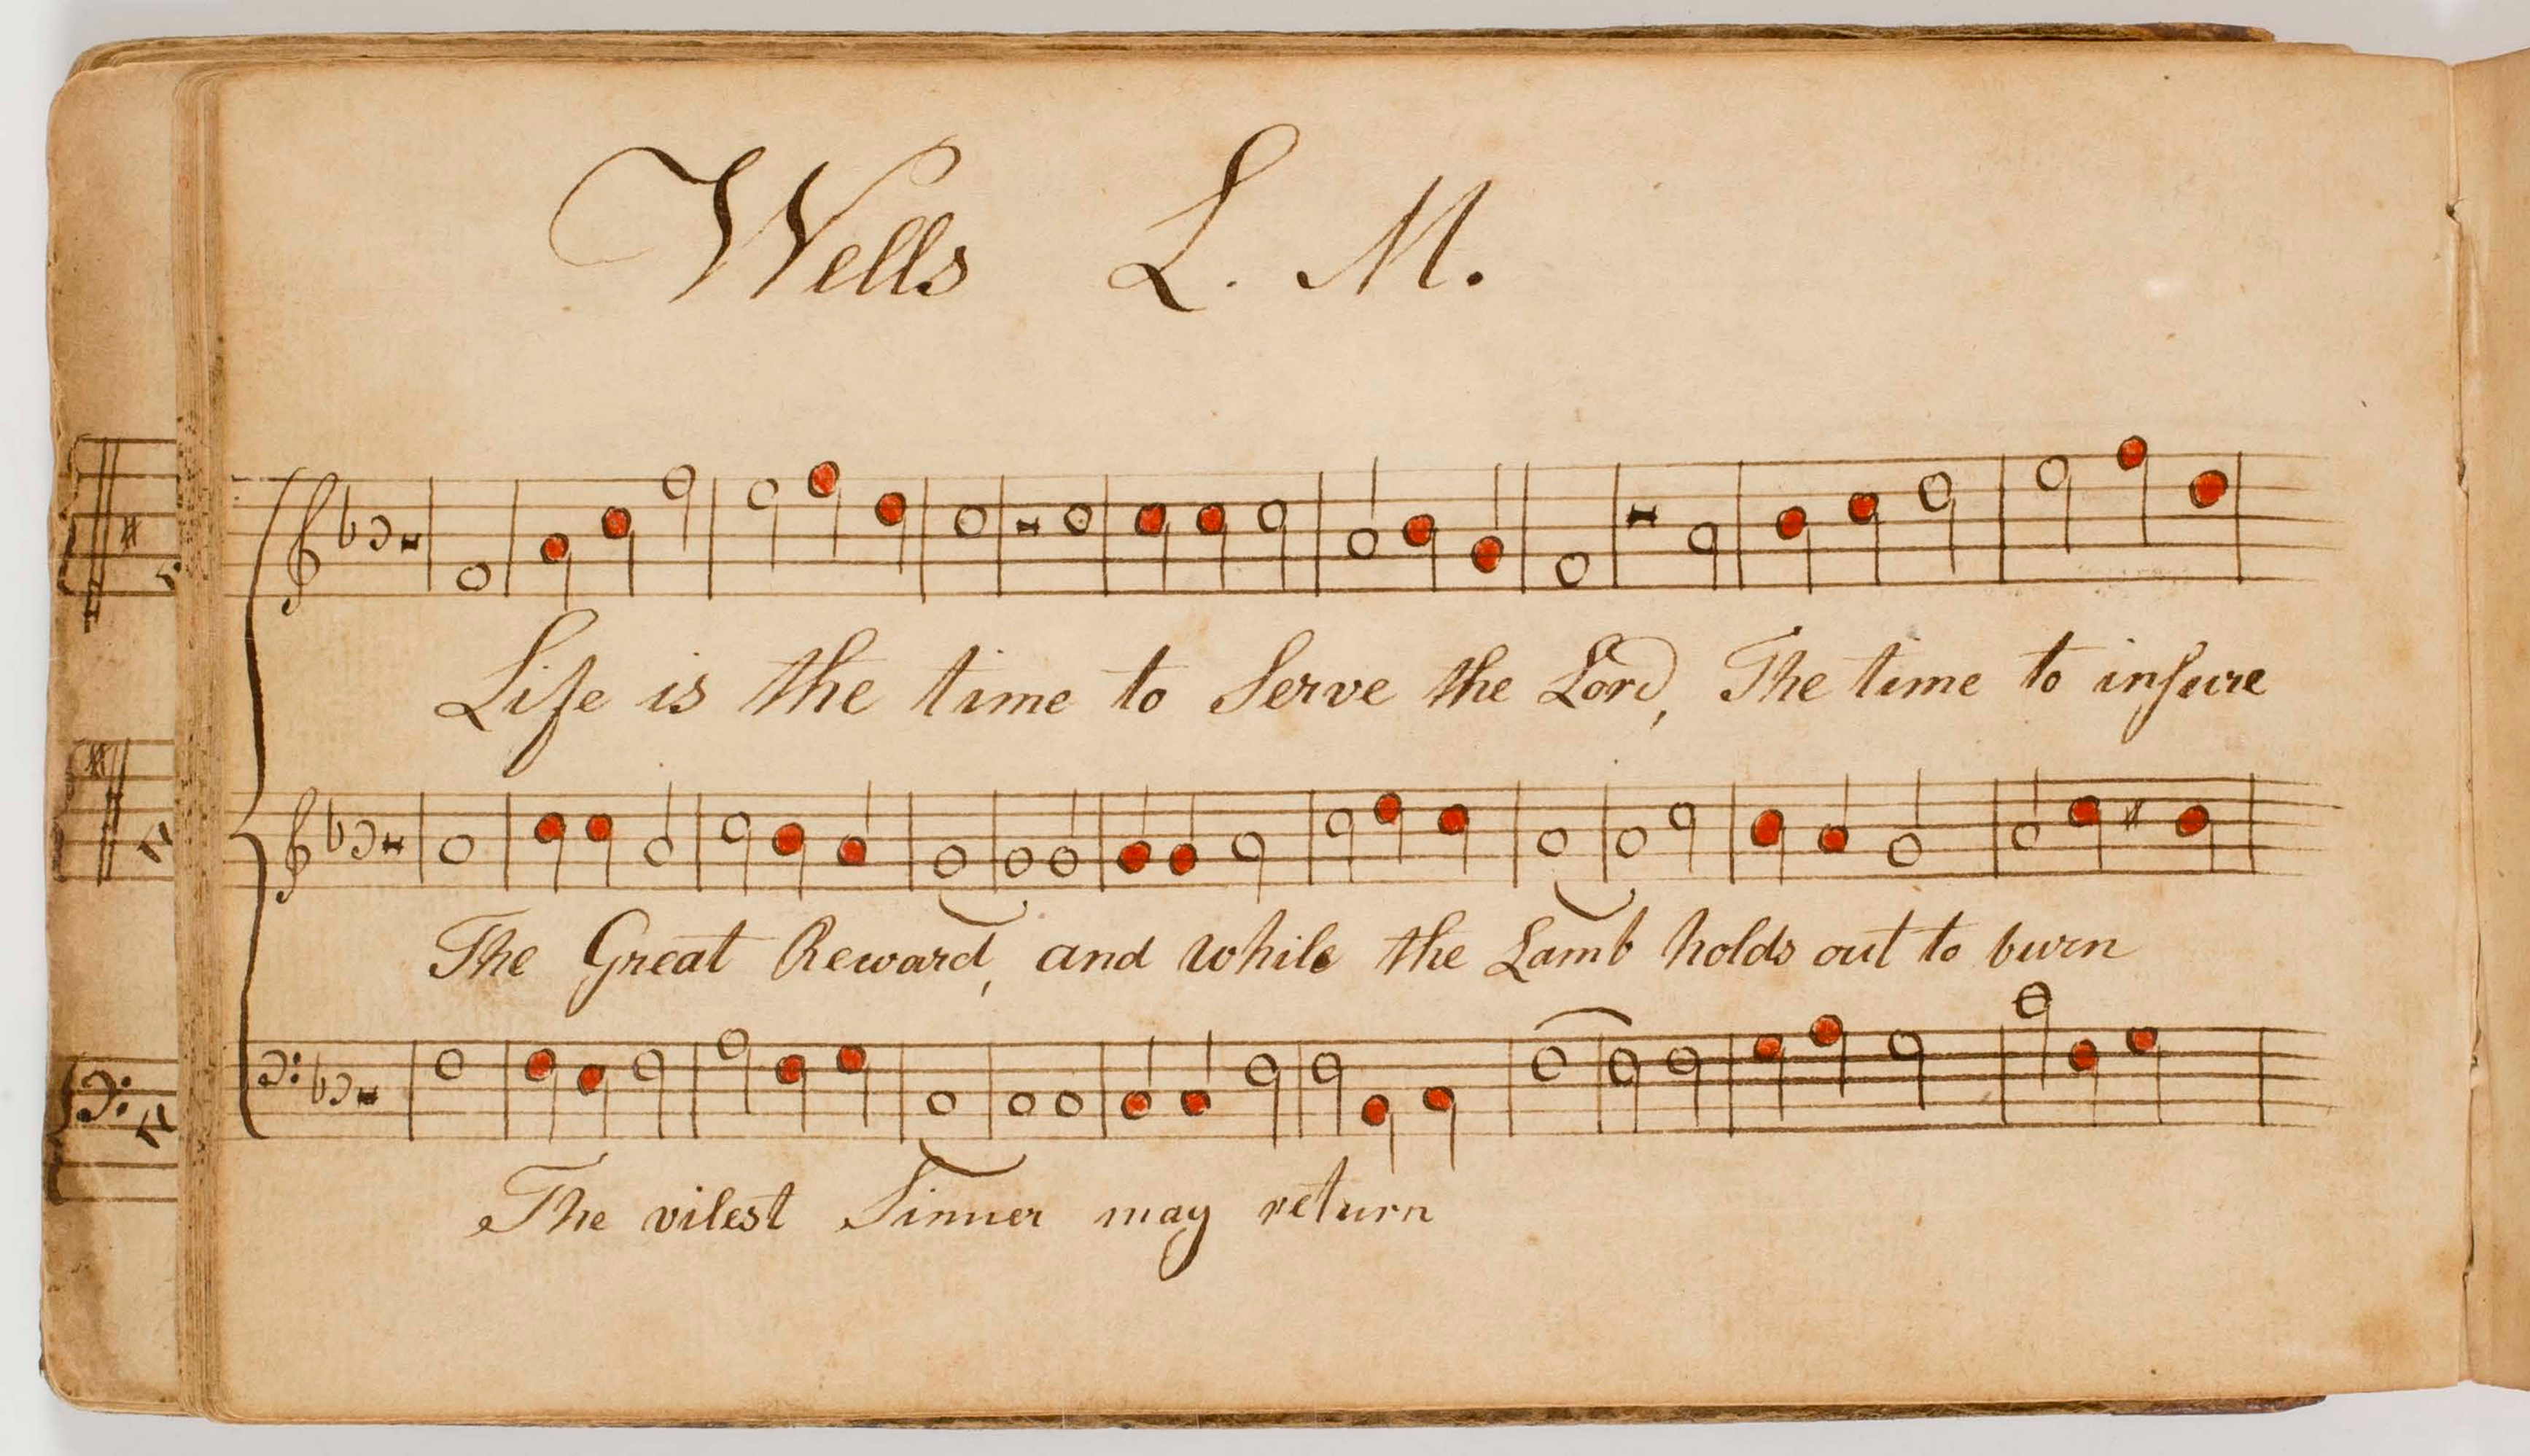 Wells L. M.
Life is the time to Serve the Lord, The time to inſure
The Great Reward, and while the Lamb holds out to burn
The vilest Sinner may return